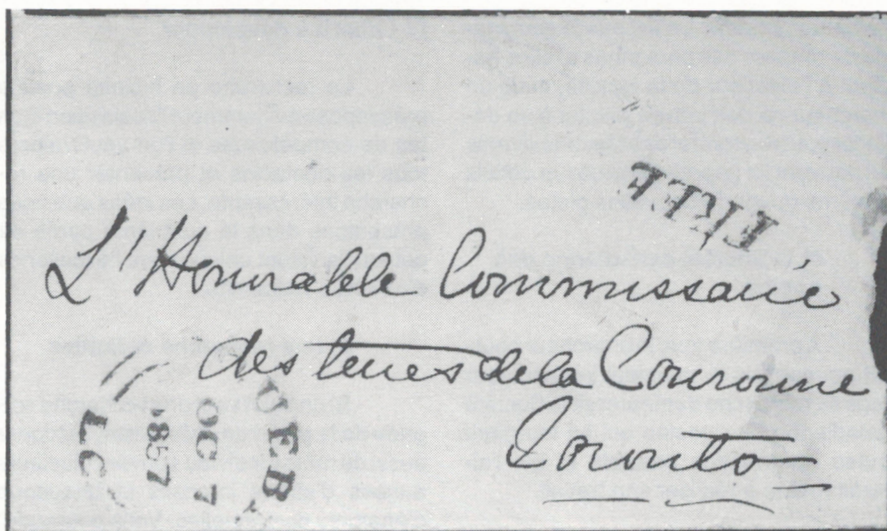 FREE
L'Honorable Commissaire
des terres de la Couronne
Toronto
QUEBEC
OC 7
1857
LC